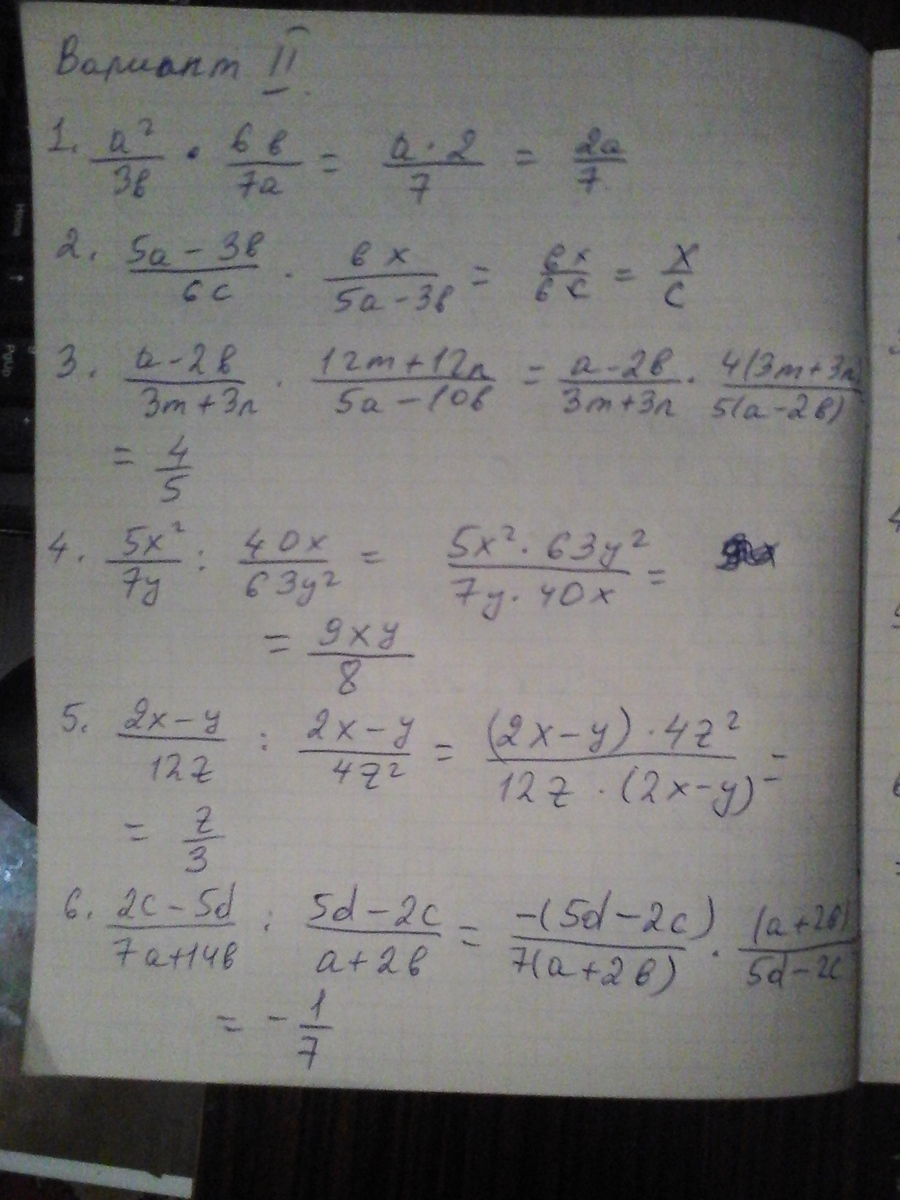 Вариант II
1. a²/3в · 6в/7a = a·2/7 = 2a/7
2. 5a-3в/6c · вx/5a-3в = вx/6c = x/c
3. a-2в/3m+3n · 12m+12n/5a-10в = a-2в/3m+3n · 4(3m+3n)/5(a-2в)
= 4/5
4. 5x²/7y : 40x/63y² = 5x²·63y²/7y·40x =
= 9xy/8
5. 2x-y/12z : 2x-y/4z² = (2x-y)·4z²/12z·(2x-y) =
= z/3
6. 2c-5d/7a+14в : 5d-2c/a+2в = -(5d-2c)/7(a+2в) · (a+2в)/5d-2c
= -1/7